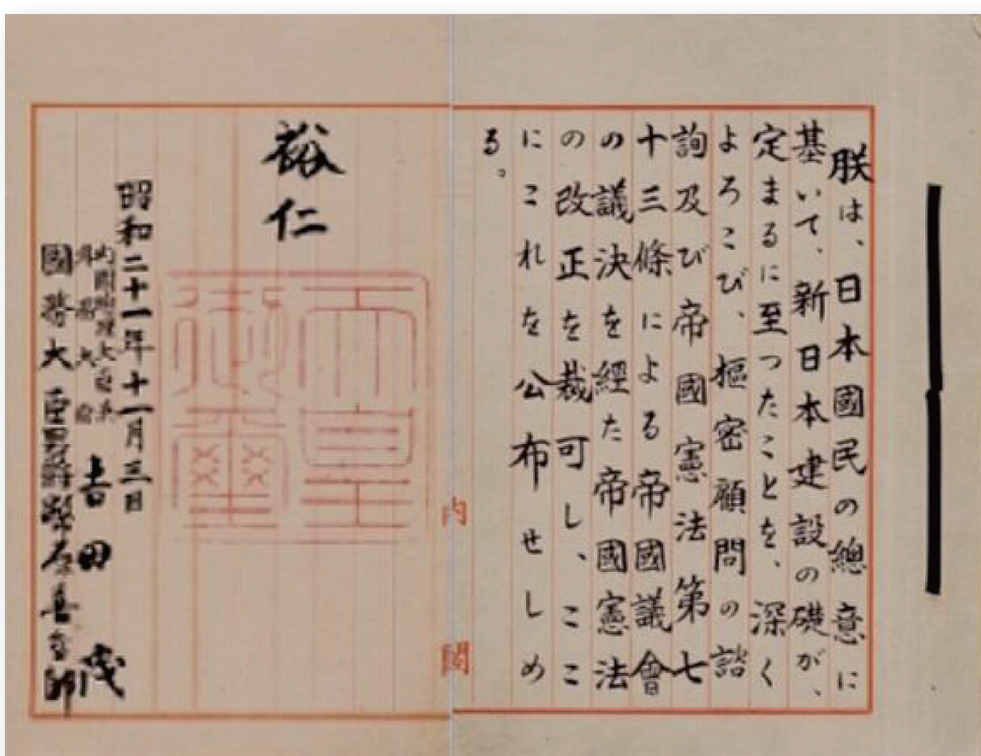 朕は、日本國民の總意に
基いて、新日本建設の礎が、
定まるに至つたことを、深く
よろこび、樞密顧問の諮
詢及び帝國憲法第七
十三條による帝國議會
の議決を經た帝國憲法
の改正を裁可し、ここ
にこれを公布せしめ
る。
内閣
裕仁
天皇
御璽
昭和二十一年十一月三日
内閣總理大臣兼
外務大臣 吉田茂
國務大臣男爵幣原喜重郎